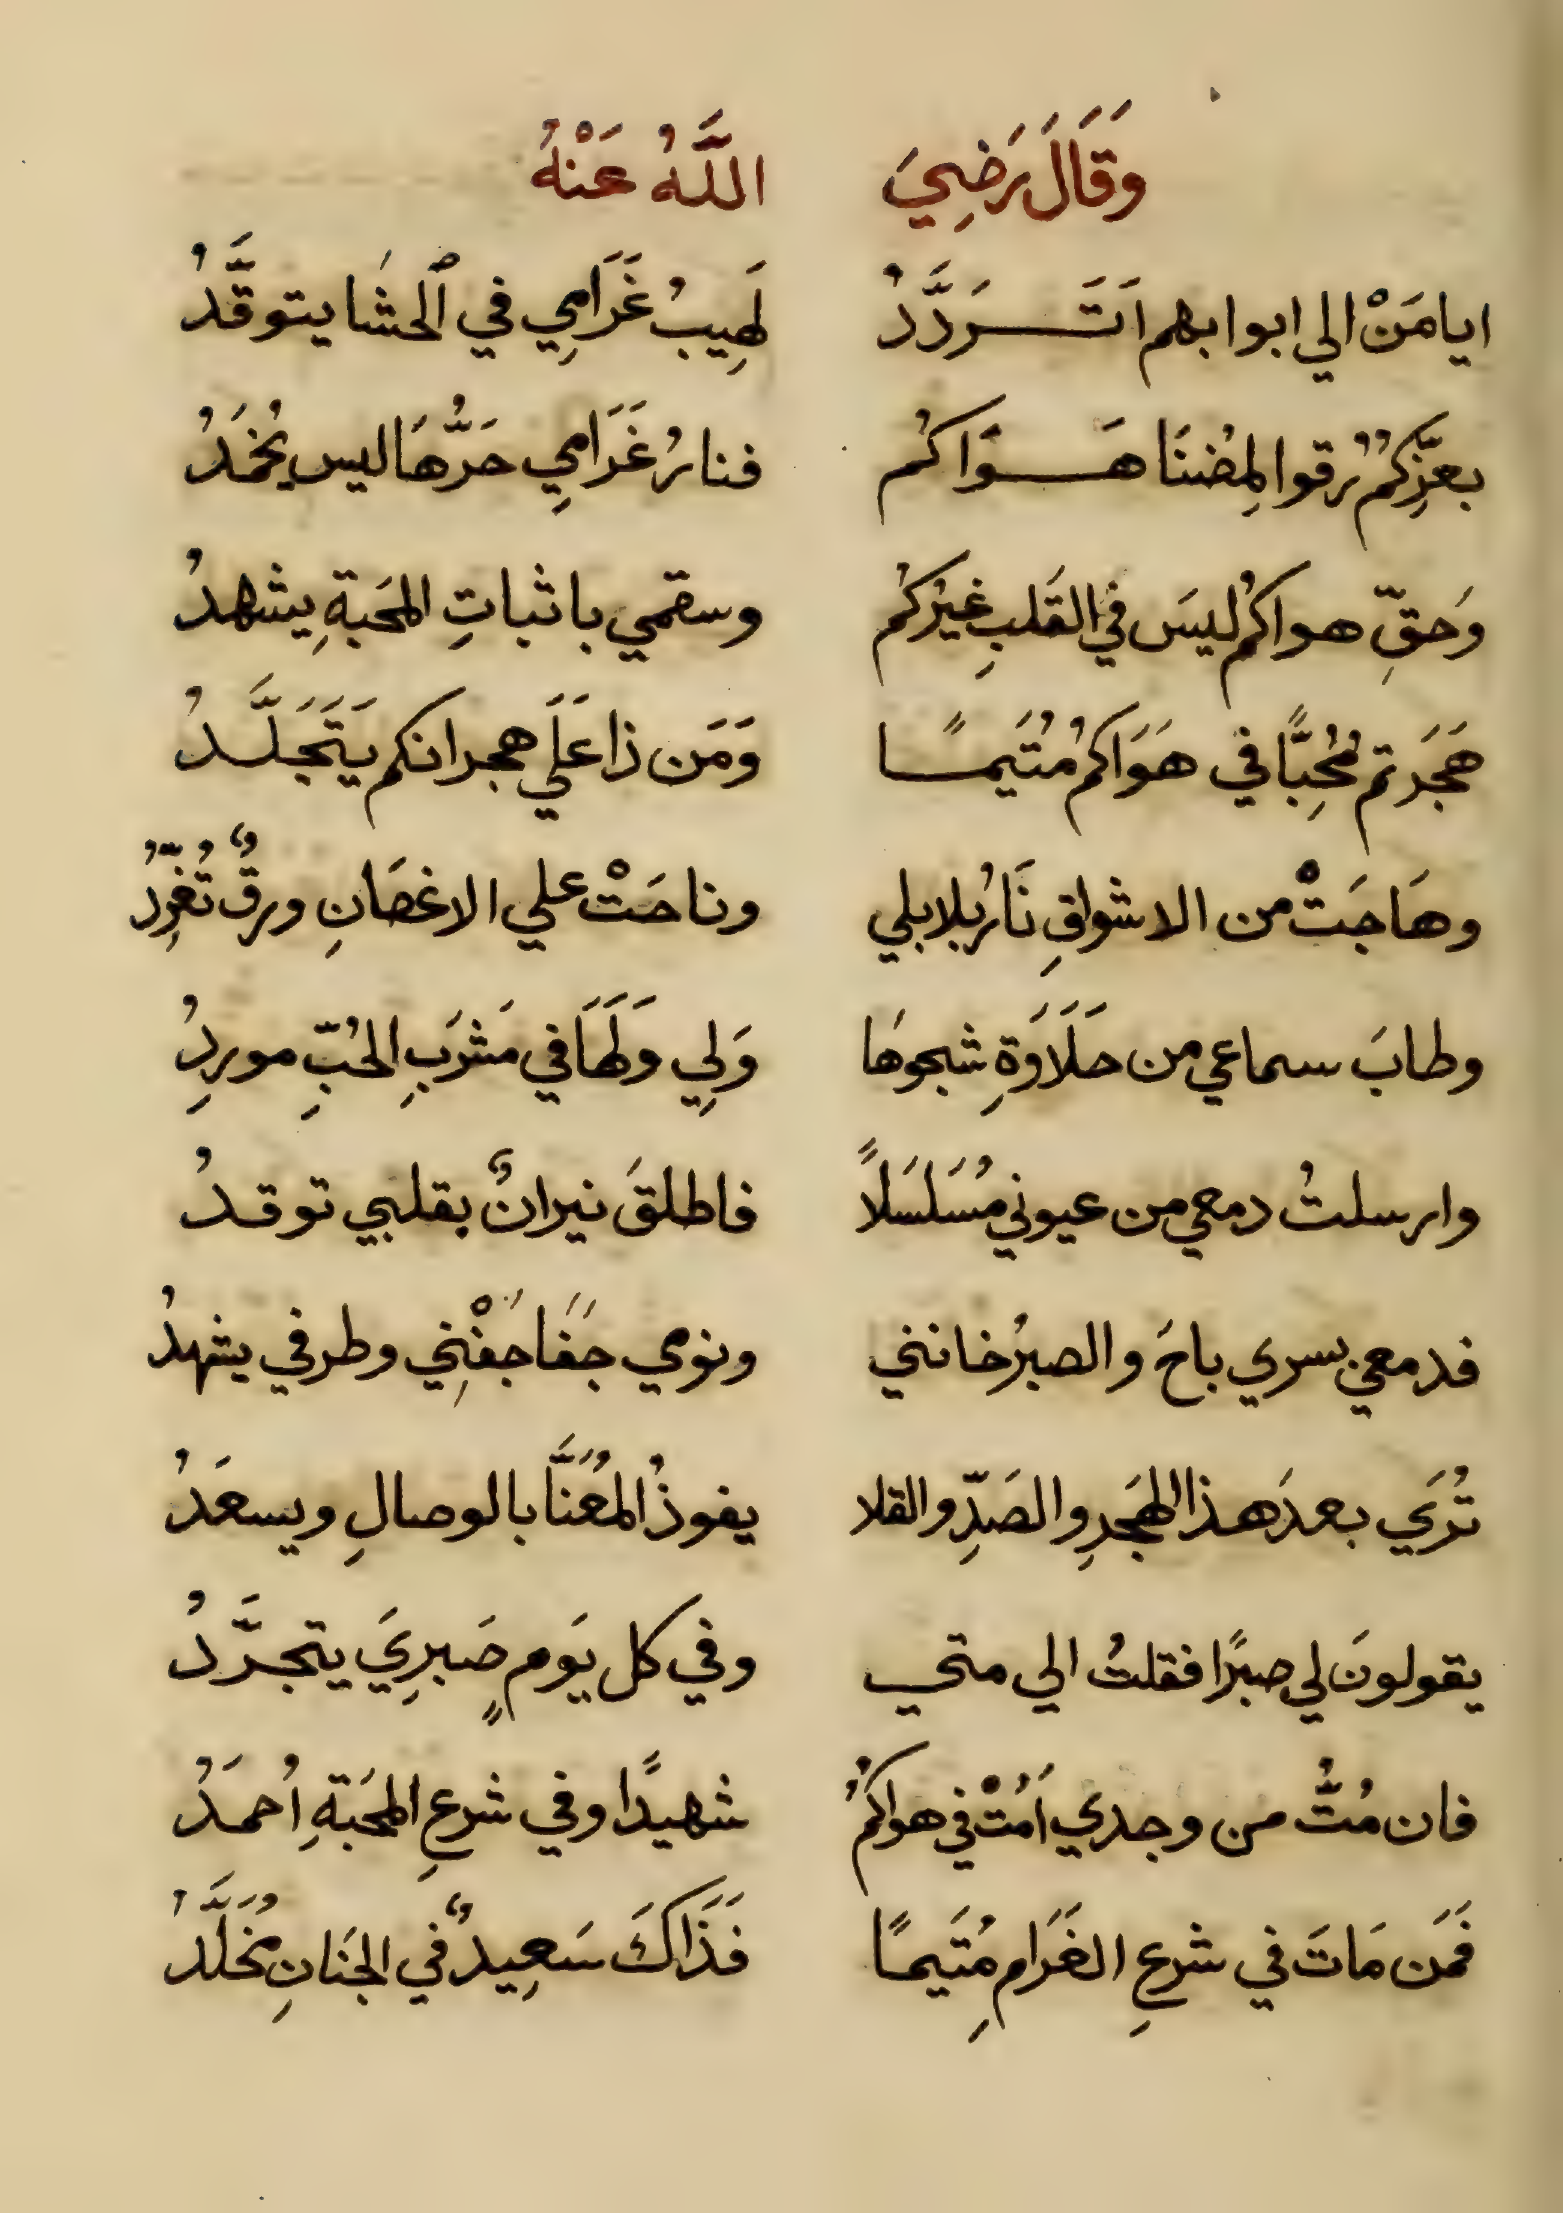 وَقَالَ رَضِيَ اللَّهُ عَنْهُ
ايا مَنْ الي ابوابهم اَتَرَدَّدُ لَهِيبُ غَرَامِي في الحشَا يتوقَّدُ
بعزِّكمُ رقوا لِمضنَا هَوَاكُم فنارُ غَرَامِي حَرُّهَا ليس يُخمَدُ
وَحقِّ هواكمُ ليسَ في القَلبِ غيرُكُم وسقمي باثباتِ المحَبةِ يشهدُ
هَجَرتم مُحِبًّا في هَوَاكمُ مُتَيمًا وَمَن ذا عَلَي هجرانكم يَتَجَلَّدُ
وهَاجَتْ من الاشواقِ نَارُ بلابلي وناحَتْ علي الاغصَانِ ورقٌ تُغرِّدُ
وطابَ سماعي من حَلَاوَةِ شجوهَا وَلِي وَلَهَا في مَشرَبِ الحُبِّ موردُ
وارسلتُ دمعي من عيوني مُسَلسَلًا فاطلقَ نيرانٌ بقلبي توقدُ
فدمعي بسري باحَ والصبرُ خانني ونومي جَفَا جَفْنِي وطرفي يشهدُ
تُرَي بعدَ هذا الهَجرِ والصَدِّ والقلا يفوزُ المُعَنَّا بالوصالِ ويسعَدُ
يقولونَ لي صبرًا فقلتُ الي متي وفي كل يَومٍ صَبرِيَ يتجرَّدُ
فان مُتُّ من وجدي اَمُتْ في هواكمُ شهيدًا وفي شرعِ المحَبَةِ اُحمَدُ
فَمَن مَاتَ في شرعِ الغَرَامِ مُتَيمًا فَذَاكَ سَعِيدٌ في الجَنانِ مُخَلَّدُ